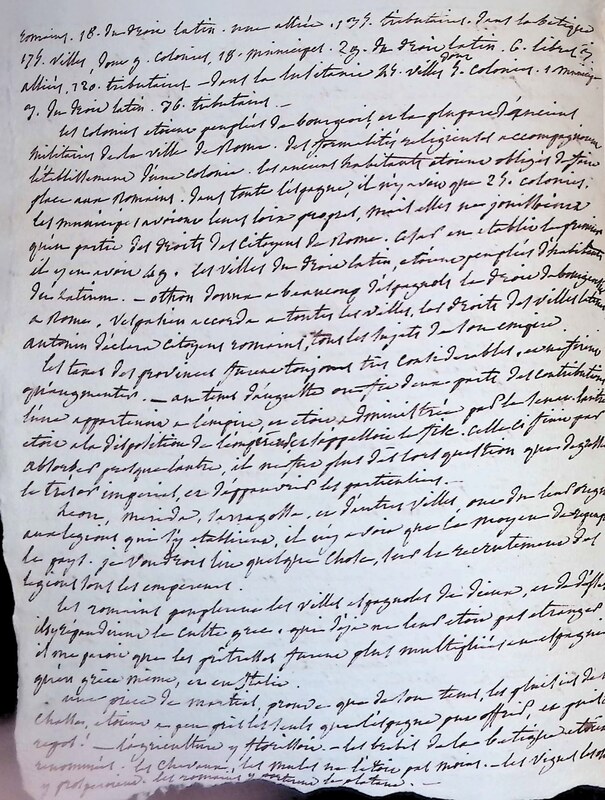 romains. 18. du droit latin. une alliée. 135. tributaires. dans la betique
175. villes, dont 9. colonies, 18. municipes. 29. du droit latin. 6. libres, 3.
alliées, 120. tributaires — dans la lusitanie 45. villes dont 5. colonies. 1. municipe
3. du droit latin. 36. tributaires. —
les colonies etoient peuplées de bourgeois et la plupart d'anciens
militaires de la ville de Rome. des formalités religieuses accompagnoient
l'etablissement d'une colonie. les anciens habitants etoient obligés de faire
place aux Romains. dans toute l'espagne, il n'y avoit que 25. colonies.
les municipes avoient leurs loix propres, mais elles ne jouissoient
qu'en partie des droits des Citoyens de Rome. Cesar en etablit le premier
il y en avoit 49. les villes du droit latin, etoient peuplées d'habitants
du latium. — othon donna a beaucoup d'espagnols le droit de bourgeoisie
a Rome. Vespasien accorda a toutes les villes, les droits des villes latines
antonin declara Citoyens romains, tous les sujets de son empire.
les taxes des provinces furent toujours très considerables, et ne firent
qu'augmenter. — au tems d'auguste on fit deux parts des contributions
l'une appartenoit a l'empire, et etoit administrée par le senat. l'autre
etoit a la disposition de l'empereur et s'appelloit le fisc. Celle ci finit par
absorber presque l'autre, il ne fut plus des lors question que de grossir
le trésor imperial, et d'appauvrir les particuliers. —
Leon, merida, sarragosse, et d'autres villes, ont du leur origine
aux legions qui s'y etablirent, il n'y avoit que ce moyen de repeupler
le pays. je voudrois lire quelque chose, sur le recrutement des
legions sous les empereurs.
les romains peuplerent les villes espagnoles de dieux, et de
ils y répandirent le culte grec, qui deja ne leur etoit pas etranger
il me paroit que les prêtresses furent plus multipliées en espagne
qu'en grèce même, et en italie.
une piece de martial, prouve que de son tems, les plaisirs de la
chasse, etoient a peu près les seuls que l'espagne put offrir, et puis le
repos! — l'agriculture y florissoit. — les brebis de la betique etoient
renommées. les chevaux, les mules ne l'etoient pas moins. — les vignes, les
y prosperoient. les romains y le platane. —